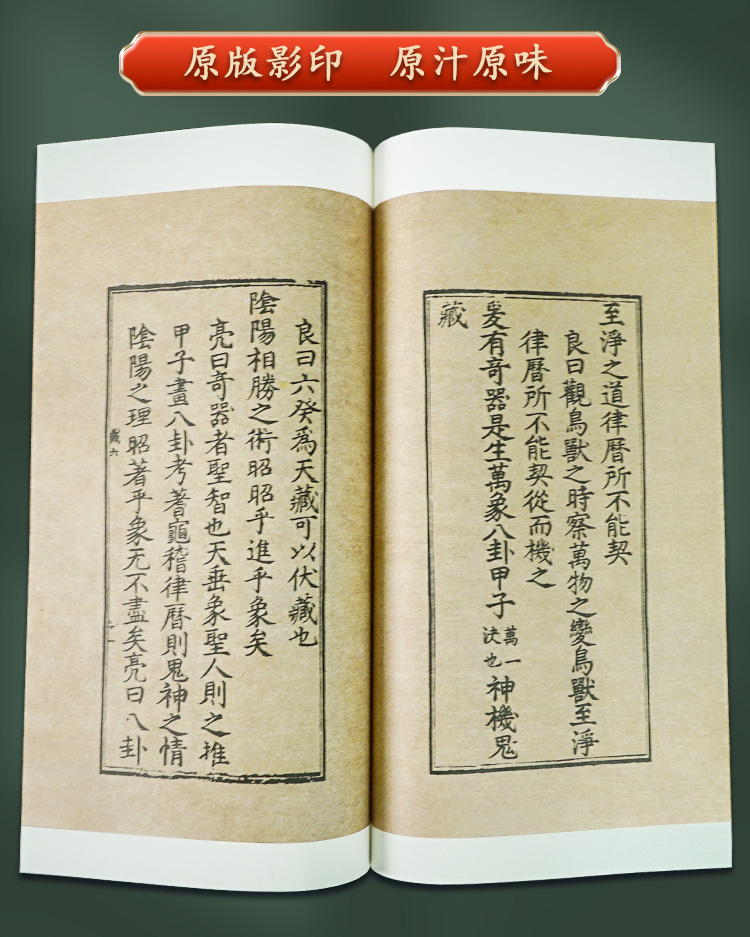 原版影印 原汁原味
至淨之道律曆所不能契
良曰觀鳥獸之時察萬物之變鳥獸至淨
律曆所不能契從而機之
爰有奇器是生萬象八卦甲子萬一決也神機鬼
藏
良曰六癸爲天藏可以伏藏也
陰陽相勝之術昭昭乎進乎象矣
亮曰奇器者聖智也天垂象聖人則之推
甲子畫八卦考蓍龜稽律曆則鬼神之情
陰陽之理昭著乎象无不盡矣亮曰八卦